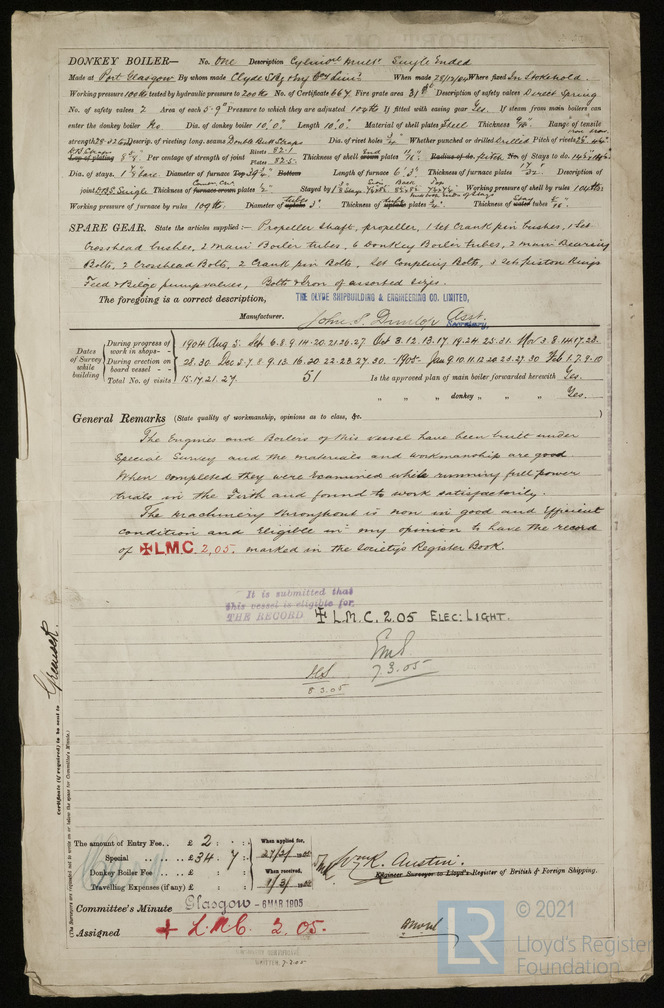 DONKEY BOILER— No. One Description Cylin Mult Single Ended
Made at Port Glasgow By whom made Clyde S. Eng Co Lim When made 28/12/04 Where fixed In Stokehold.
Working pressure 100 lb tested by hydraulic pressure to 200 lb No. of Certificate 667 Fire grate area Description of safety valves Direct Spring
No. of safety valves 2 Area of each 5.9" Pressure to which they are adjusted 104 lb If fitted with easing gear Yes. If steam from main boilers can
enter the donkey boiler No Dia. of donkey boiler 10'.0" Length 10'.0" Material of shell plates Steel Thickness Range of tensile
strength 28-32 Descrip. of riveting long. seams Double Butt Straps Dia. of rivet holes Whether punched or drilled Drilled Pitch of rivets
Lap of plating Per centage of strength of joint Rivets 82.1 Plates 82.5 Thickness of shell crown plates Radius of do. pitch No. of Stays to do.
Dia. of stays. Diameter of furnace Top Bottom Length of furnace 6'.3" Thickness of furnace plates Description of
joint Single Thickness of furnace crown plates Stayed by Working pressure of shell by rules 104 lbs
Working pressure of furnace by rules 109 lb. Diameter of uptake tubes 3" Thickness of uptake plates Thickness of water tubes
SPARE GEAR. State the articles supplied:— Propeller shaft, propeller, 1 Set Crank pin bushes, 1 Set
Crosshead bushes, 2 Main Boiler tubes, 6 Donkey Boiler tubes, 2 main Bearing
Bolts, 2 Crosshead Bolts, 2 Crank pin Bolts, Set Coupling Bolts, 3 Sets piston Rings
Feed & Bilge pump valves, Bolts & Iron of assorted sizes.
The foregoing is a correct description,
THE CLYDE SHIPBUILDING & ENGINEERING CO. LIMITED,
Manufacturer. John S. Dunlop Asst. Secretary.
Dates of Survey while building
During progress of work in shops - - 1904. Aug 5. Sep 6.8.9.14.20.21.26.27. Oct 3.12.13.17.19.24.25.31. Nov 3.8.14.17.23.
During erection on board vessel - - 28.30. Dec 5.7.8.9.13.16.20.22.23.27.30. 1905. Jan 9.10.11.12.20.23.27.30 Feb 1.7.9.10
Total No. of visits 15.17.21.27. 51 Is the approved plan of main boiler forwarded herewith Yes.
" " " donkey " " " Yes.
General Remarks (State quality of workmanship, opinions as to class, &c.)
The Engines and Boilers of this vessel have been built under
Special Survey and the materials and workmanship are good
When completed they were Examined while running full power
trials in the Firth and found to work satisfactorily.
The Machinery throughout is now in good and Efficient
condition and Eligible in my opinion to have the record
of ✠ L.M.C. 2,05. marked in the Society's Register Book.
It is submitted that
this vessel is eligible for
THE RECORD ✠ L.M.C. 2.05 ELEC: LIGHT.
7.3.05
8 3.05
Certificate (if required) to be sent to Greenock.
(The Surveyors are requested not to write on or below the space for Committee's Minute.)
The amount of Entry Fee.. £ 2 : :
Special .. .. .. £ 34 . 7 :
Donkey Boiler Fee .. .. £ : :
Travelling Expenses (if any) £ : :
When applied for,
27/2/ 1905
When received,
1/3/ 1905
Wm R. Austin.
Engineer Surveyor to Lloyd's Register of British & Foreign Shipping.
Committee's Minute Glasgow - 6 MAR 1905
Assigned + L.M.C. 2.05.
WRITTEN 7.3.05
LR
© 2021
Lloyd's Register
Foundation